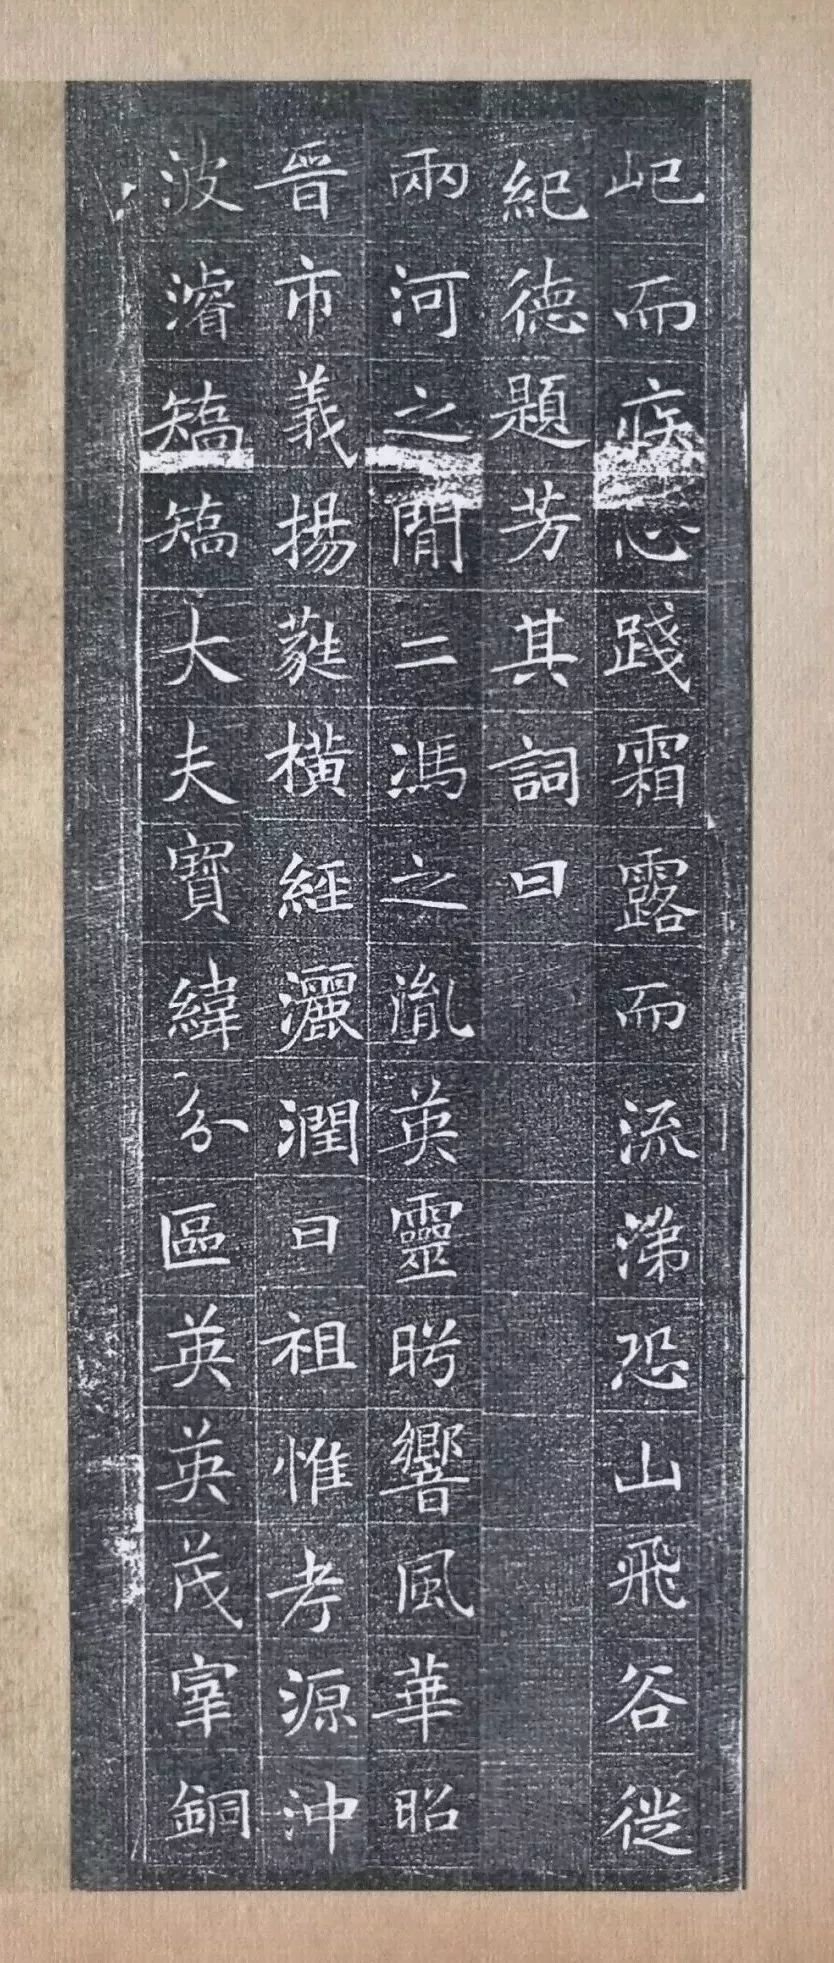 屺而疚心踐霜露而流涕恐山飛谷徙
紀德題芳其詞曰
兩河之間二馮之胤英靈肸響風華昭
晉市義揚蕤橫經灑潤曰祖惟考源沖
波濬矯矯大夫寶緯分區英英茂宰銅